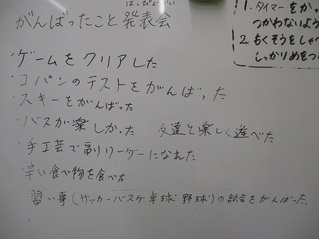 はっぴょうかい
がんばったこと発表会
・ゲームをクリアした
・コパンのテストをがんばった
・スキーをがんばった
・バスが楽しかった 友達と楽しく遊べた
・手工芸で副リーダーになれた
・辛い食べ物を食べた
・習い事(サッカー・バスケ 卓球 野球)の試合をがんばった。
1. タイマーをか
つかわないよう
2. もくそうをしゃべ
しっかりめをつ